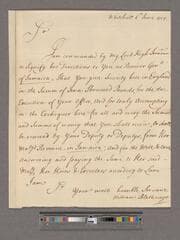 Whitehall 6th June 1705.
Sr
I am commanded by my Lord High Treasurer
to Signify his Directions to You as Receiver Genll
of Jamaica, That you give Security here in England
in the Sum of Pounds for the due
Execution of Your Office, and for truly Accompting
in the Exchequer here for all and every the Summe
and Summs of money that You shall receive, or shall
be received by Your Deputy or Deputys from Her
Majts Revenue, in Jamaica, and for the
answering and paying the Same to Her said
Maty, Her Heirs &c Successors according to Law
I am
Sr
Your most humble Servant
William